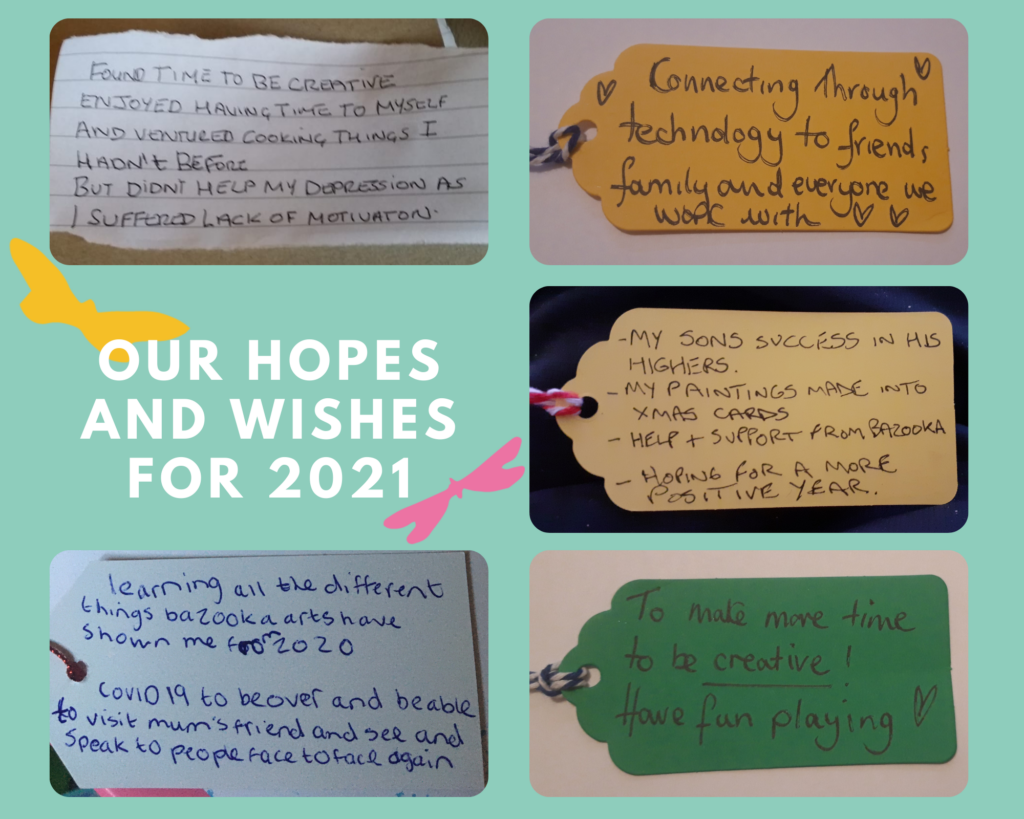 FOUND TIME TO BE CREATIVE
ENJOYED HAVING TIME TO MYSELF
AND VENTURED COOKING THINGS I
HADN'T BEFORE
BUT DIDNT HELP MY DEPRESSION AS
I SUFFERED LACK OF MOTIVATON.
Connecting through
technology to friends,
family and everyone we
work with
OUR HOPES
AND WISHES
FOR 2021
-MY SONS SUCCESS IN HIS
HIGHERS.
- MY PAINTINGS MADE INTO
XMAS CARDS
- HELP + SUPPORT FROM BAZOOKA
- HOPING FOR A MORE
POSITIVE YEAR.
learning all the different
things bazooka arts have
shown me from 2020
COVID 19 to be over and be able
to visit mum's friend and see and
speak to people face to face again
To make more time
to be creative!
Have fun playing